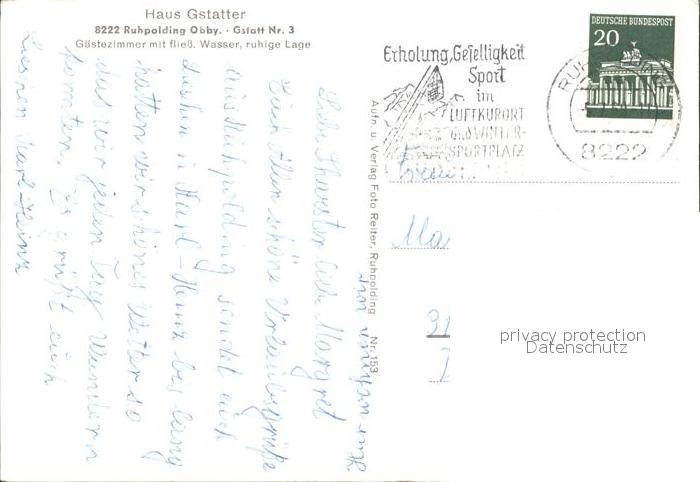 Haus Gstatter
8222 Ruhpolding Obby. · Gstatt Nr. 3
Gästezimmer mit fließ. Wasser, ruhige Lage
Erholung, Geselligkeit
Sport
im
LUFTKURORT
und WINTER-
SPORTPLATZ
DEUTSCHE BUNDESPOST
20
8222
Aufn u. Verlag Foto Reiter, Ruhpolding Nr. 153
Liebe Schwester liebe Margret
Euch allen schöne Urlaubsgrüße
aus Ruhpolding sendet euch
und Karl-Heinz bis lang
hatten wir schönes Wetter so
das wir jeden Tag Wandern
konnten. Es grüßt euch
Karl-Heinz
privacy protection
Datenschutz